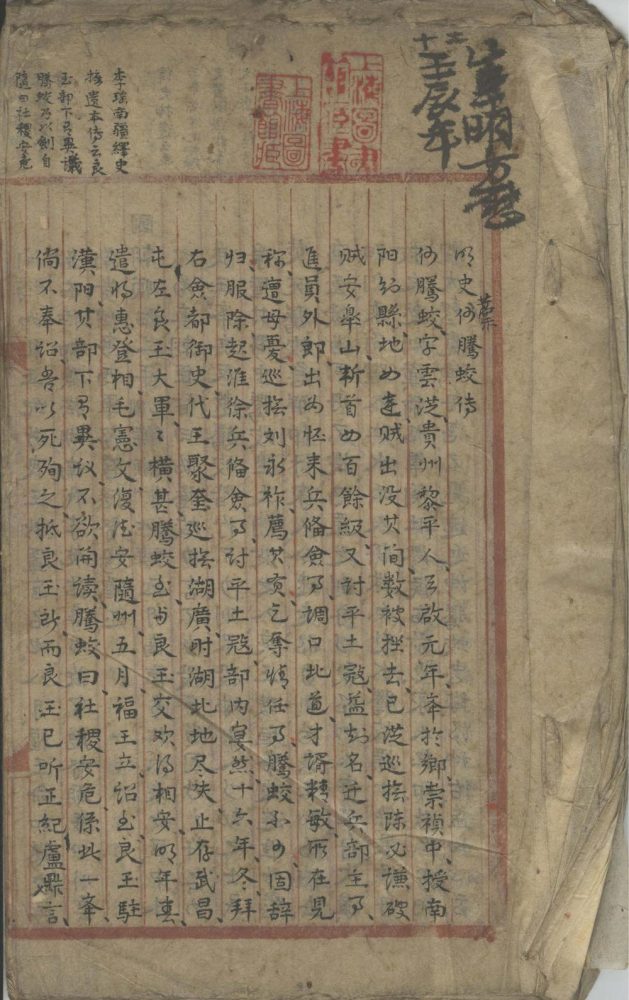 壬辰年
上海圖書館藏
李瑤南疆繹史
摭遺本傳云良
玉部下有異議
騰蛟乃以劍自
隨曰社稷安危
明史藁何騰蛟傳
何騰蛟字雲從貴州黎平人天啟元年舉於鄉崇禎中授南
阳知縣地四達贼出没其间數被挫去已從巡撫陈必謙破
贼安皋山斬首四百餘級又討平土寇益知名迁兵部主事
進員外郎出为怀来兵俻僉事調口北道才諝精敏所在見
称遭母憂巡撫刘永祚薦其贤乞奪情任事騰蛟不可固辞
归服除起淮徐兵俻僉事讨平土寇部内宴然十六年冬拜
右僉都御史代王聚奎巡撫湖廣时湖北地尽失止存武昌
屯左良玉大軍〻横甚騰蛟至与良玉交欢得相安明年春
遣将惠登相毛憲文復德安隨州五月福王立诏至良玉駐
漢阳其部下有異议不欲開读騰蛟曰社稷安危係此一舉
倘不奉诏吾以死殉之抵良玉所而良玉已听正紀盧鼎言